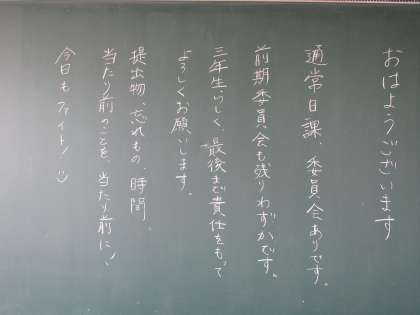 おはようございます
通常日課、委員会ありです。
前期委員会も残りわずかです。
三年生らしく、最後まで責任をもって
よろしくお願いします。
提出物、忘れもの、時間、
当たり前のことを、当たり前に!
今日もファイト!